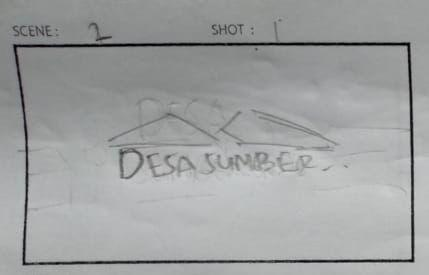 SCENE: 2 SHOT: 1
DESA SUMBER...